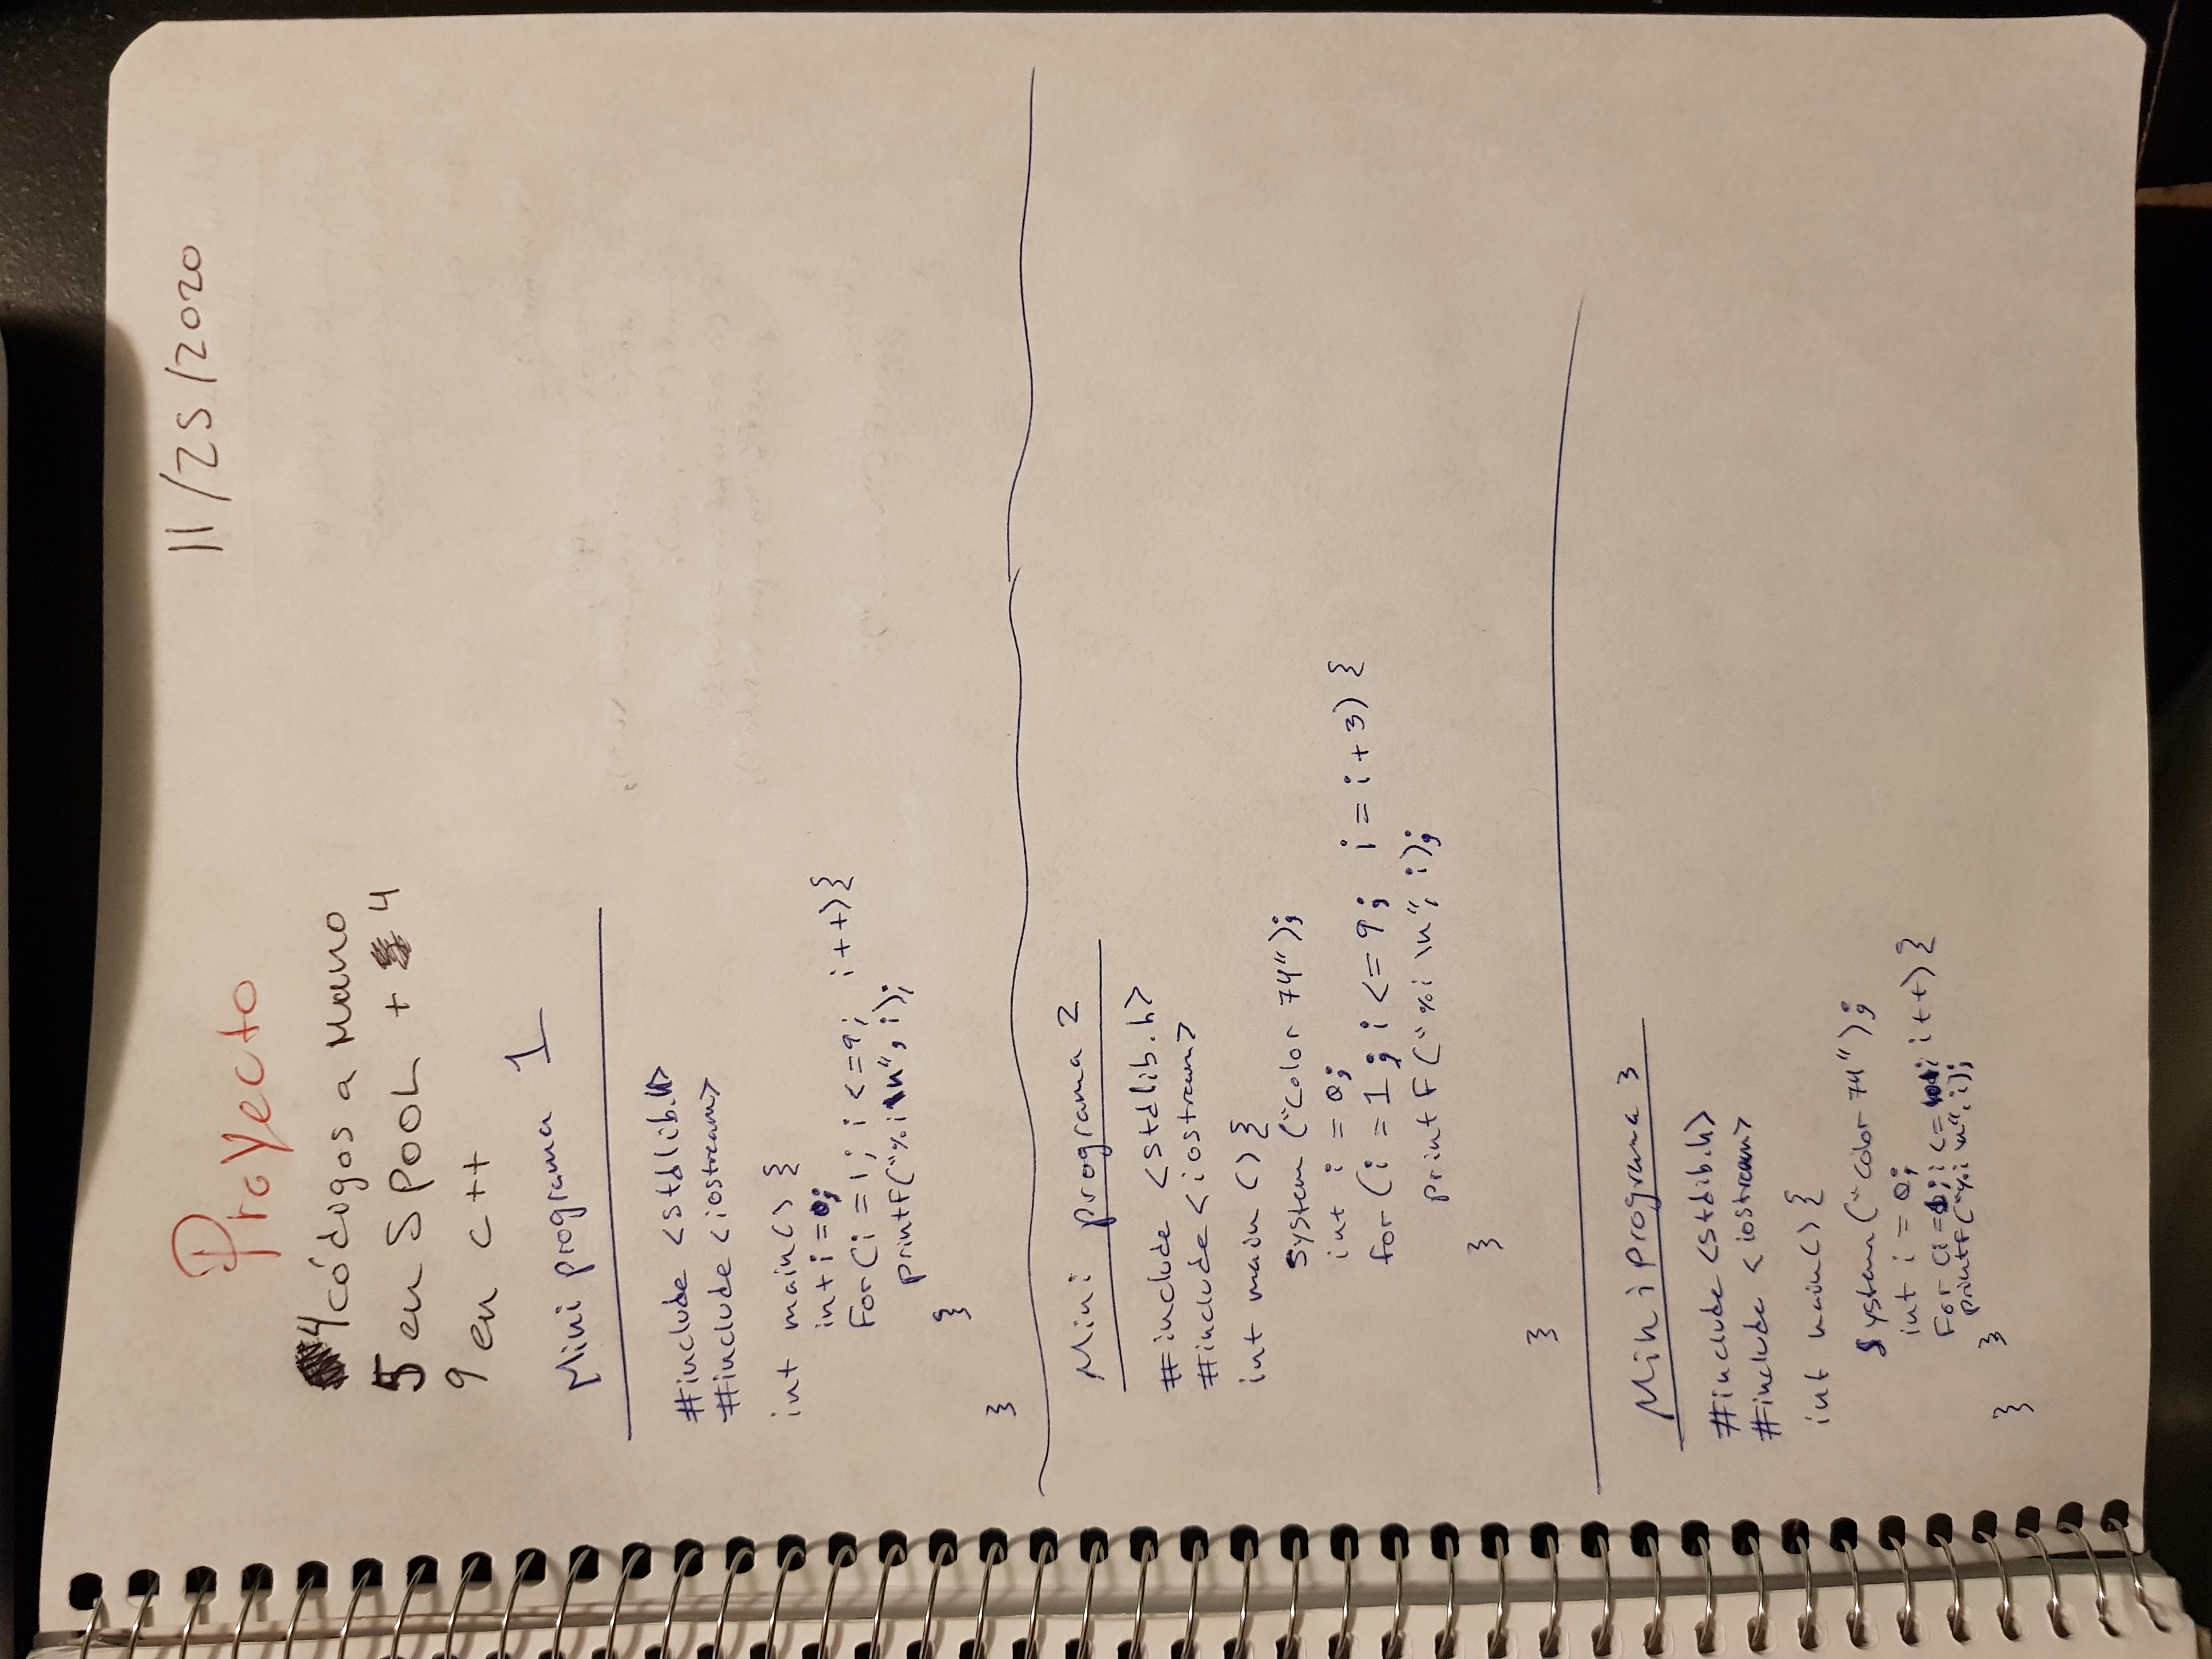 11/25/2020
Proyecto
4 códigos a mano
5 en SPOOL + 4
9 en c++
Mini programa 1
#include <stdlib.h>
#include <iostream>
int main() {
int i = 0;
For(i = 1; i <= 9; i++){
printf("%i\n", i);
}
}
Mini programa 2
#include <stdlib.h>
#include <iostream>
int main () {
System ("color 74");
int i = 0;
for (i = 1; i <= 9; i = i + 3) {
printf ("%i \n", i);
}
}
Mini programa 3
#include <stdib.h>
#include <iostream>
int main() {
System ("color 74");
int i = 0;
For (i = ; i <= ; i++) {
printf("%i \n", i);
}
}